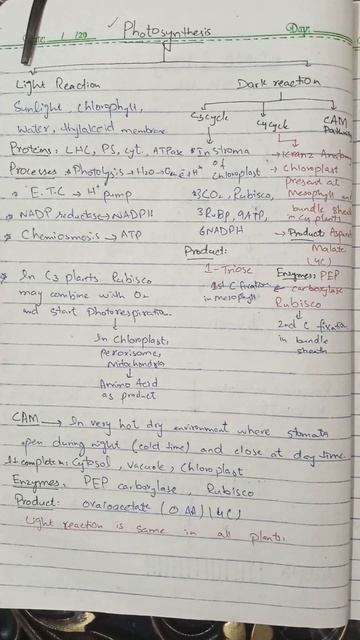 Photosynthesis
Date: / /20
Day:
Light Reaction
Dark reaction
Sunlight, Chlorophyll,
Water, thylakoid membrane
C3 cycle
C4 cycle
CAM
Pathway
Proteins: LHC, PS, cyt, ATPase
Processes: Photolysis → H2O →
E.T.C → H+ pump
NADP reductase → NADPH
Chemiosmosis → ATP
In stroma
of
chloroplast
3CO2, Rubisco,
3RuBP, 9ATP,
6NADPH
Product:
1-Triose
→ Kranz Anatomy
→ Chloroplast
present at
Mesophyll and
bundle sheath
in C4 plants
→ Product: Aspart
Malate
(4C)
Enzymes: PEP
carboxylase
1st C fixation
in mesophyll
Rubisco
2nd C fixation
in bundle
sheath
In C3 plants Rubisco
may combine with O2
and start Photorespiration.
In Chloroplast,
Peroxisome,
Mitochondria
Amino Acid
as product
CAM → In very hot dry environment where stomata
open during night (cold time) and close at day time.
It complete in: Cytosol, vacuole, Chloroplast
Enzymes: PEP carboxylase, Rubisco
Product: oxaloacetate (OAA) (4C)
Light reaction is same in all plants.